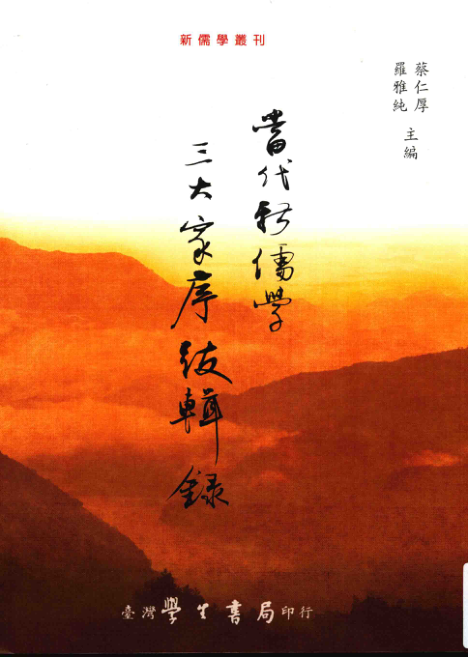 新儒學叢刊
蔡仁厚
羅雅純
主編
當代新儒學
三大家序跋輯錄
臺灣學生書局印行